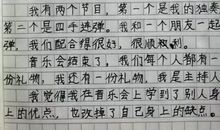 我有两个节目，第一个是我的独奏
第二个是四手连弹。我和一个朋友一起
弹，我们配合得很好，很顺利。
音乐会结束了，我们每个人都有一
份礼物，我还有一份礼物，是主持人
我觉得我在音乐会上学到了别人身
上的优点，也改掉了自己身上的缺点。